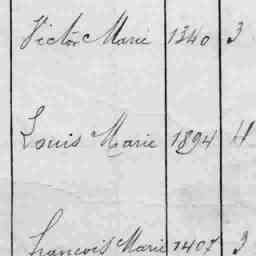 Victor Marie 1340 3
Louis Marie 1894 4
François Marie 1407 3